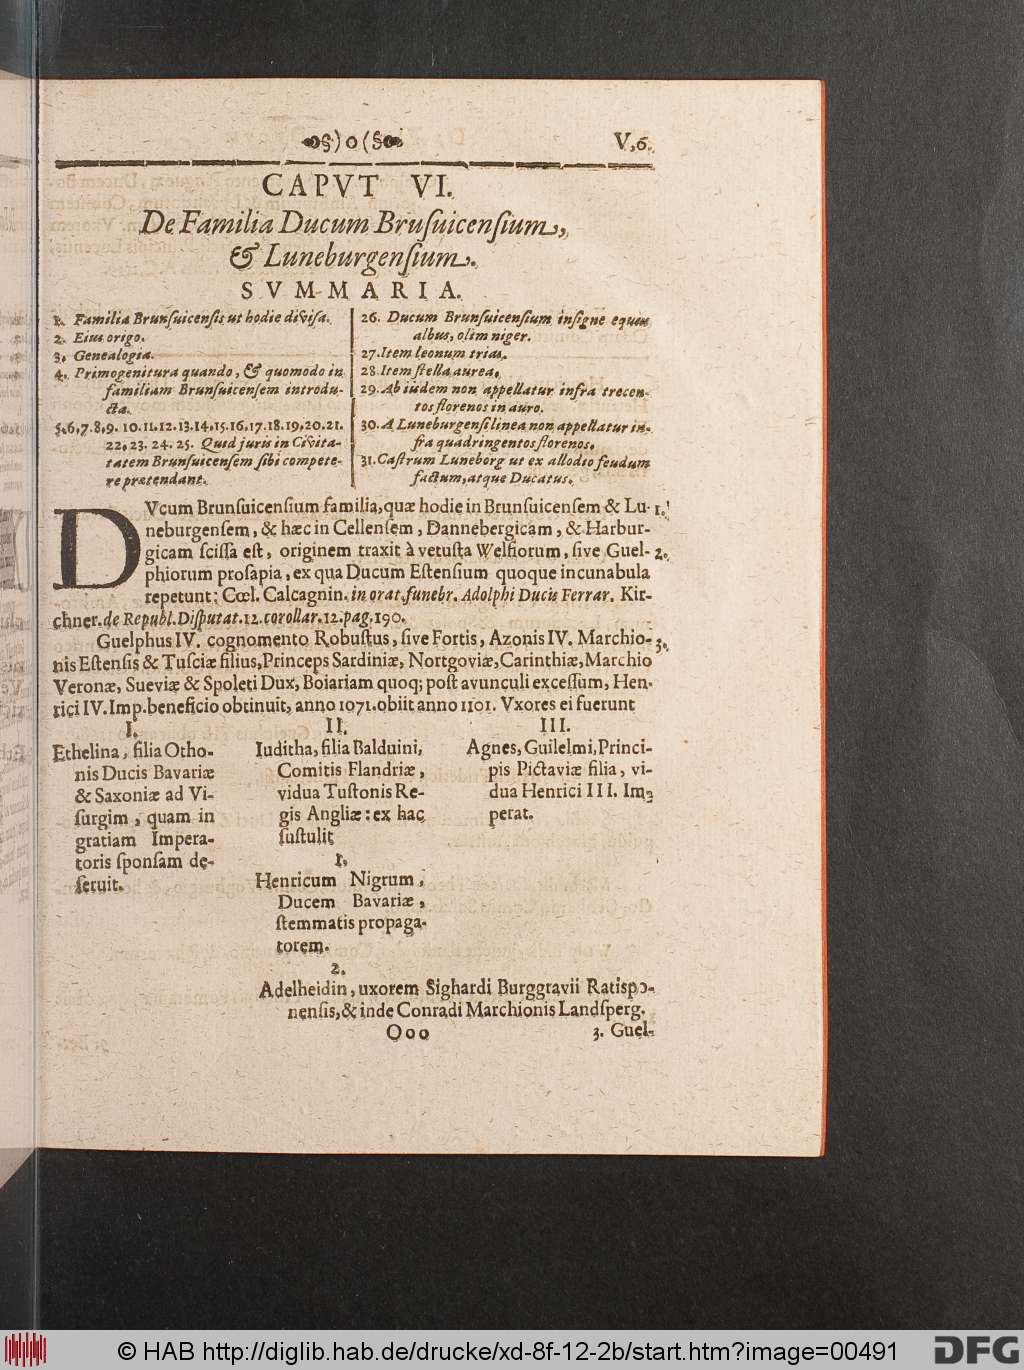 §) o (§ V, 6.
CAPVT VI.
De Familia Ducum Brusuicensium,
& Luneburgensium.
SVMMARIA.
1. Familia Brunſuicensis ut hodie diviſa.
2. Eius origo.
3. Genealogia.
4. Primogenitura quando, & quomodo in
familiam Brunſuicenſem introdu-
cta.
5.6,7.8,9. 10.11.12.13.14,15.16,17.18.19,20.21.
22,23. 24. 25. Quid juris in Civita-
tatem Brunſuicenſem ſibi compete-
re prætendant.
26. Ducum Brunſuicenſium inſigne equus
albus, olim niger.
27. Item leonum trias.
28. Item ſtella aurea.
29. Ab iiſdem non appellatur infra trecen-
tos florenos in auro.
30. A Luneburgenſi linea non appellatur in-
fra quadringentos florenos.
31. Caſtrum Luneborg ut ex allodio feudum
factum, atque Ducatus.
DVcum Brunſuicenſium familia, quæ hodie in Brunſuicenſem & Lu- 1.
neburgenſem, & hæc in Cellenſem, Dannebergicam, & Harbur-
gicam ſciſſa eſt, originem traxit à vetuſta Welfiorum, ſive Guel- 2.
phiorum proſapia, ex qua Ducum Eſtenſium quoque incunabula
repetunt: Cœl. Calcagnin. in orat. funebr. Adolphi Ducis Ferrar. Kir-
chner. de Republ. Diſputat. 12. corollar. 12. pag. 190.
Guelphus IV. cognomento Robuſtus, ſive Fortis, Azonis IV. Marchio- 3.
nis Eſtenſis & Tuſciæ filius, Princeps Sardiniæ, Nortgoviæ, Carinthiæ, Marchio
Veronæ, Sueviæ & Spoleti Dux, Boiariam quoq; poſt avunculi exceſſum, Hen-
rici IV. Imp. beneficio obtinuit, anno 1071. obiit anno 1101. Vxores ei fuerunt
I.
Ethelina, filia Otho-
nis Ducis Bavariæ
& Saxoniæ ad Vi-
ſurgim, quam in
gratiam Impera-
toris ſponſam de-
ſeruit.
II.
Iuditha, filia Balduini,
Comitis Flandriæ,
vidua Tuſtonis Re-
gis Angliæ: ex hac
ſuſtulit
1.
Henricum Nigrum,
Ducem Bavariæ,
ſtemmatis propaga-
torem.
III.
Agnes, Guilelmi, Princi-
pis Pictaviæ filia, vi-
dua Henrici III. Im-
perat.
2.
Adelheidin, uxorem Sighardi Burggravii Ratispo-
nenſis, & inde Conradi Marchionis Landſperg.
Ooo 3. Guel-
© HAB http://diglib.hab.de/drucke/xd-8f-12-2b/start.htm?image=00491
DFG